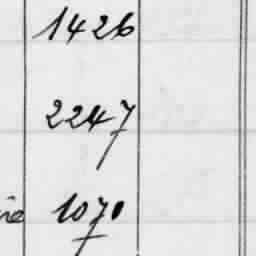 1426
2247
1070